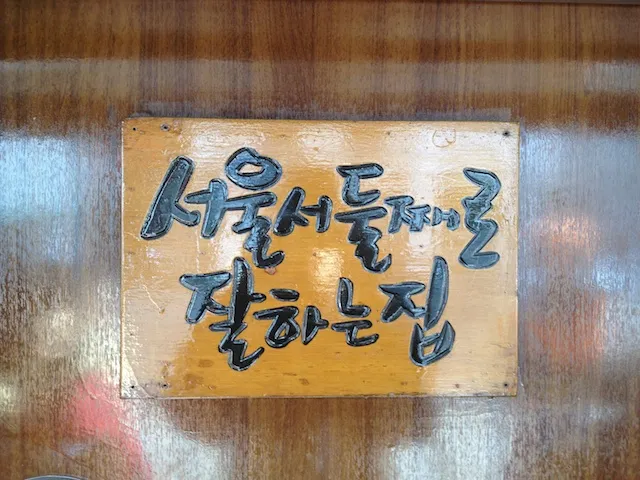 서울서둘째로
잘하는집